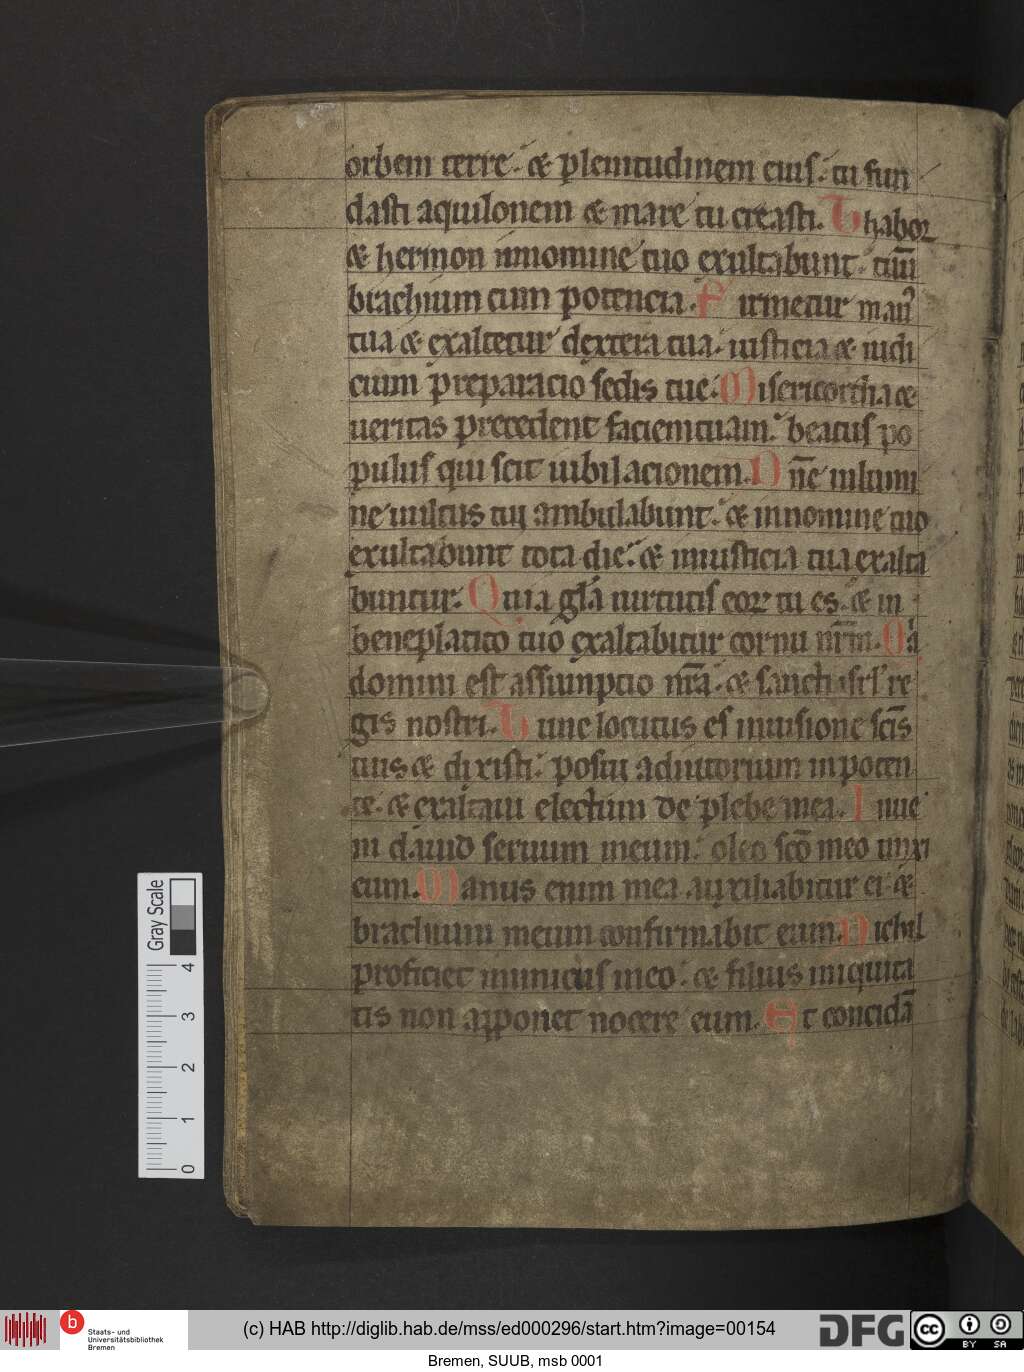 orbem terre· & plenitudinem eius· tu fun
dasti aquilonem & mare tu creasti. Thabor
& hermon innomine tuo exultabunt· tuū
brachium cum potencia. Firmetur man᷒
tua & exaltetur dextera tua· iusticia & iudi
cium preparacio sedis tue. Misericordia &
ueritas precedent faciemtuam· beatus po
pulus qui scit iubilacionem. Dn̄e inlumi
ne uultus tui ambulabunt· & innomine tuo
exultabunt tota die· & iniusticia tua exalta
buntur. Quia gl̄a uirtutis eoꝝ tu es· & in
beneplacito tuo exaltabitur cornu nr̄m. Qa
domini est assumptio nr̄a· & sancti isrl' re
gis nostri. Tunc locutus es inuisione sc̄is
tuis & dixisti· posui adiutorium inpoten
te· & exaltaui electum de plebe mea. Inue
ni dauid seruum meum· oleo sc̄o meo unxi
eum. Manus enim mea auxiliabitur ei· &
brachium meum confirmabit eum. Nichil
proficiet inimicus meo· & filius iniquita
tis non apponet nocere eum. Et concidā
Gray Scale
4
3
2
1
0
b
Staats- und
Universitätsbibliothek
Bremen
(c) HAB http://diglib.hab.de/mss/ed000296/start.htm?image=00154
DFG
cc
BY SA
Bremen, SUUB, msb 0001